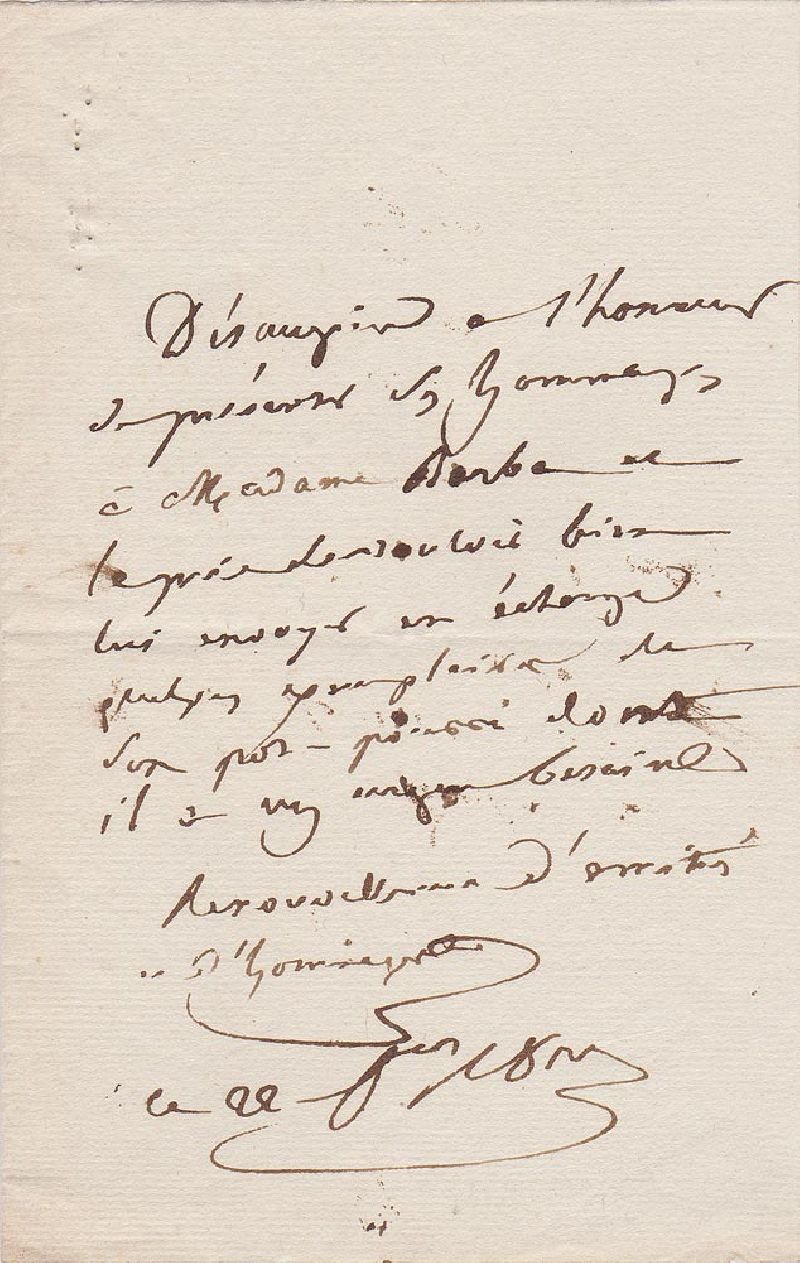 Désaugiers a l'honneur
de présenter ses hommages
à Madame Barba et
la prie de vouloir bien
lui envoyer en échange
quelques exemplaires de
son pot-pourri dont
il a un urgen besoin
Renouvellemen d'amitiés
et d'hommages
ce 22